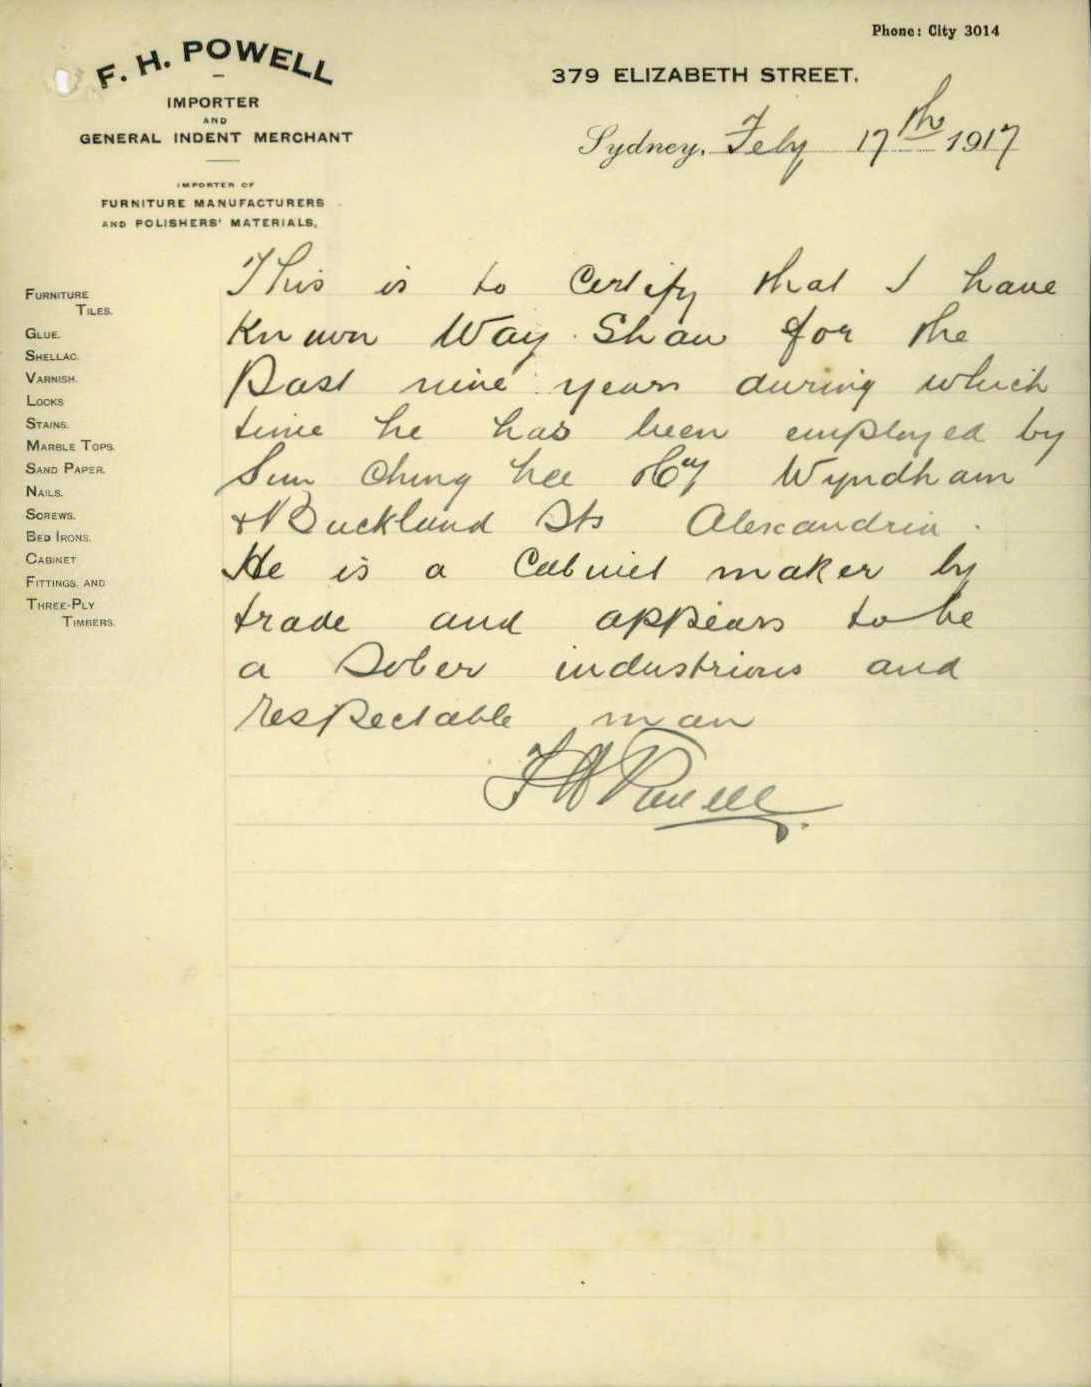 Phone: City 3014
F. H. POWELL
IMPORTER
AND
GENERAL INDENT MERCHANT
IMPORTER OF
FURNITURE MANUFACTURERS
AND POLISHERS' MATERIALS.
379 ELIZABETH STREET.
Sydney, Feby 17th 1917
FURNITURE
TILES.
GLUE.
SHELLAC.
VARNISH.
LOCKS
STAINS.
MARBLE TOPS.
SAND PAPER.
NAILS.
SCREWS.
BED IRONS.
CABINET
FITTINGS, AND
THREE-PLY
TIMBERS.
This is to Certify that I have
Known Way Shaw for the
Past nine years during which
time he has been employed by
Sun Ching Lee Wyndham
& Buckland Sts Alexandria.
He is a Cabinet maker by
trade and appears to be
a Sober industrious and
respectable man
F H Powell